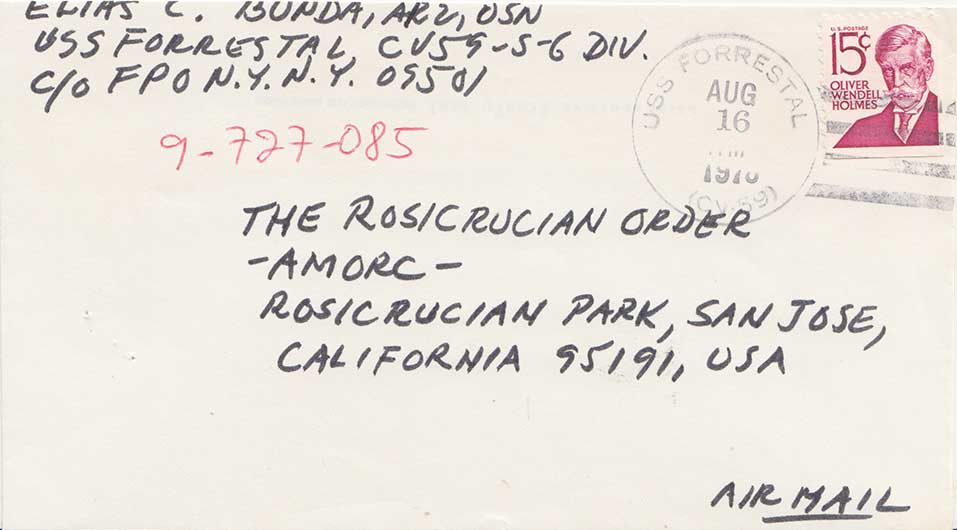 ELIAS C. BUNDA, AR2, USN
USS FORRESTAL CV59-S-6 DIV.
C/O FPO N.Y. N.Y. 09501
9-727-085
USS FORRESTAL
AUG
16
(CV-59)
U.S. POSTAGE
15¢
OLIVER
WENDELL
HOLMES
THE ROSICRUCIAN ORDER
-AMORC-
ROSICRUCIAN PARK, SAN JOSE,
CALIFORNIA 95191, USA
AIR MAIL